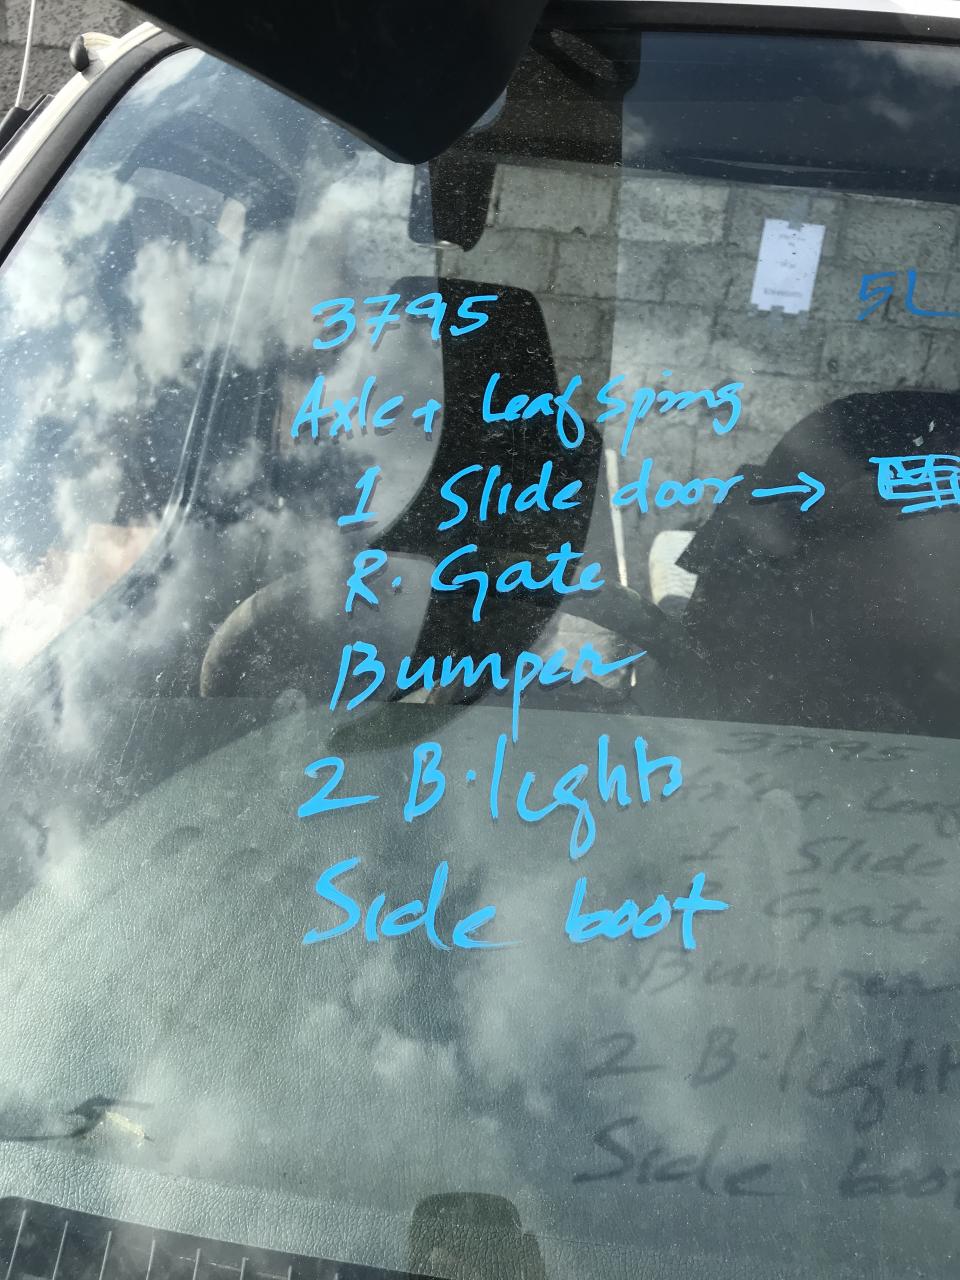 3795
5L
Axle + Leaf Spring
1 Slide door →
R. Gate
Bumper
2 B. lights
Side boot